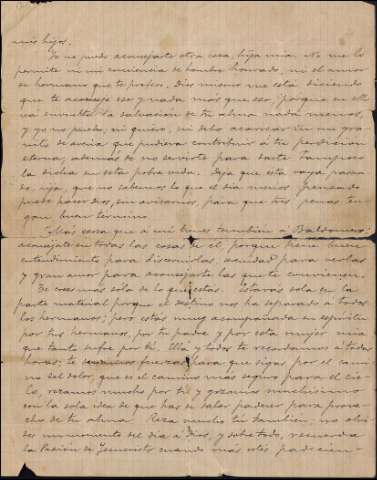 mis hijos.
Yo no puedo aconsejarte otra cosa, hija mia. No me lo
permite ni mi conciencia de hombre honrado, ni el amor
de hermano que te profeso. Dios mismo me está diciendo
que te aconseje eso y nada más que eso, porque en ello
va envuelta la salvacion de tu alma nada menos,
y yo no puedo, ni quiero, ni debo acarrear ni un gra-
nito de arena que pudiera contribuir á tu perdicion
eterna, además de no servirte para darte tampoco
la dicha en esta pobre vida. Deja que esta vaya pasan-
do, hija, que no sabemos lo que el dia menos pensado
puede hacer Dios, sin avisarnos, para que tus penas ten-
gan buen termino.
Más cerca que á mi tienes tambien á Baldomero:
aconséjate en todas las cosas de el, porque tiene buen
entendimiento para discernirlas, acuidad para verlas
y gran amor para aconsejarte las que te convienen.
Te crees más sola de lo que estás. Estarás sola en la
parte material porque el destino nos ha separado á todos
los hermanos; pero estás muy acompañada en espiritu
por tus hermanos, por tu padre y por esta mujer mia
que tanto sufre por ti. Ella y todos te recordamos á todas
horas; te enviamos fuerzas para que sigas por el cami-
no del dolor, que es el camino más seguro para el cie-
lo, rezamos mucho por ti y gozamos muchisimo
con la sola idea de que has de saber padecer para prove-
cho de tu alma. Reza mucho tu tambien; no olvi-
des un momento del dia á Dios, y sobre todo, recuerda
la Pasión de Jesucristo cuando más estés padecien-